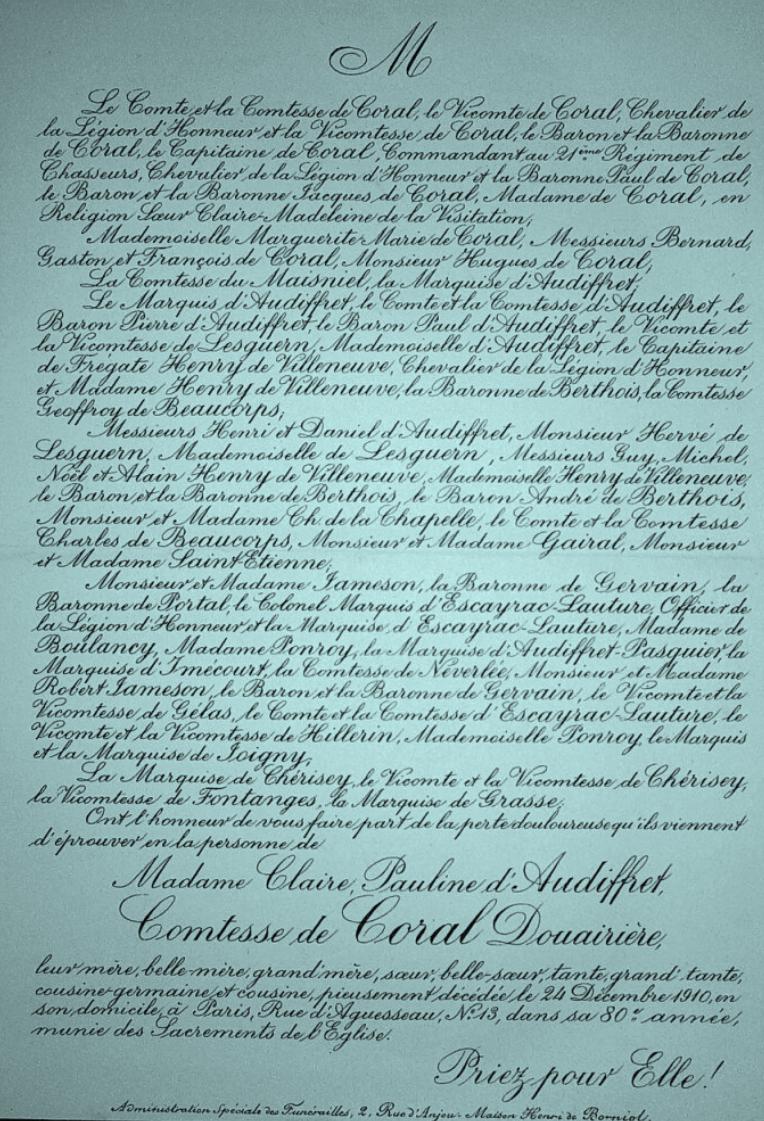 M
Le Comte et la Comtesse de Coral, le Vicomte de Coral, Chevalier de
la Légion d'Honneur et la Vicomtesse de Coral, le Baron et la Baronne
de Coral, le Capitaine de Coral, Commandant au 21ème Régiment de
Chasseurs, Chevalier de la Légion d'Honneur et la Baronne Paul de Coral,
le Baron et la Baronne Jacques de Coral, Madame de Coral, en
Religion Sœur Claire-Madeleine de la Visitation;
Mademoiselle Marguerite-Marie de Coral, Messieurs Bernard,
Gaston et François de Coral, Monsieur Hugues de Coral;
La Comtesse du Maisniel, la Marquise d'Audiffret;
Le Marquis d'Audiffret, le Comte et la Comtesse d'Audiffret, le
Baron Pierre d'Audiffret, le Baron Paul d'Audiffret, le Vicomte et
la Vicomtesse de Lesguern, Mademoiselle d'Audiffret, le Capitaine
de Frégate Henry de Villeneuve, Chevalier de la Légion d'Honneur,
et Madame Henry de Villeneuve, la Baronne de Berthois, la Comtesse
Geoffroy de Beaucorps;
Messieurs Henri et Daniel d'Audiffret, Monsieur Hervé de
Lesguern, Mademoiselle de Lesguern, Messieurs Guy, Michel,
Noël et Alain Henry de Villeneuve, Mademoiselle Henry de Villeneuve,
le Baron et la Baronne de Berthois, le Baron André de Berthois,
Monsieur et Madame Ch. de la Chapelle, le Comte et la Comtesse
Charles de Beaucorps, Monsieur et Madame Gairal, Monsieur
et Madame Saint-Etienne;
Monsieur et Madame Jameson, la Baronne de Gervain, la
Baronne de Portal, le Colonel Marquis d'Escayrac-Lauture, Officier de
la Légion d'Honneur et la Marquise d'Escayrac-Lauture, Madame de
Boulancy, Madame Ponroy, la Marquise d'Audiffret-Pasquier, la
Marquise d'Imécourt, la Comtesse de Néverlée, Monsieur et Madame
Robert Jameson, le Baron et la Baronne de Gervain, le Vicomte et la
Vicomtesse de Gélas, le Comte et la Comtesse d'Escayrac-Lauture, le
Vicomte et la Vicomtesse de Hillerin, Mademoiselle Ponroy, le Marquis
et la Marquise de Joigny;
La Marquise de Chérisey, le Vicomte et la Vicomtesse de Chérisey,
la Vicomtesse de Fontanges, la Marquise de Grasse;
Ont l'honneur de vous faire part de la perte douloureuse qu'ils viennent
d'éprouver en la personne de
Madame Claire, Pauline d'Audiffret,
Comtesse de Coral Douairière,
leur mère, belle-mère, grand'mère, sœur, belle-sœur, tante, grand'tante,
cousine-germaine et cousine, pieusement décédée, le 24 Décembre 1910, en
son domicile, à Paris, Rue d'Aguesseau, N° 13, dans sa 80e année,
munie des Sacrements de l'Eglise.
Priez pour Elle!
Administration Spéciale des Funérailles, 2, Rue d'Anjou - Maison Henri de Borniol.